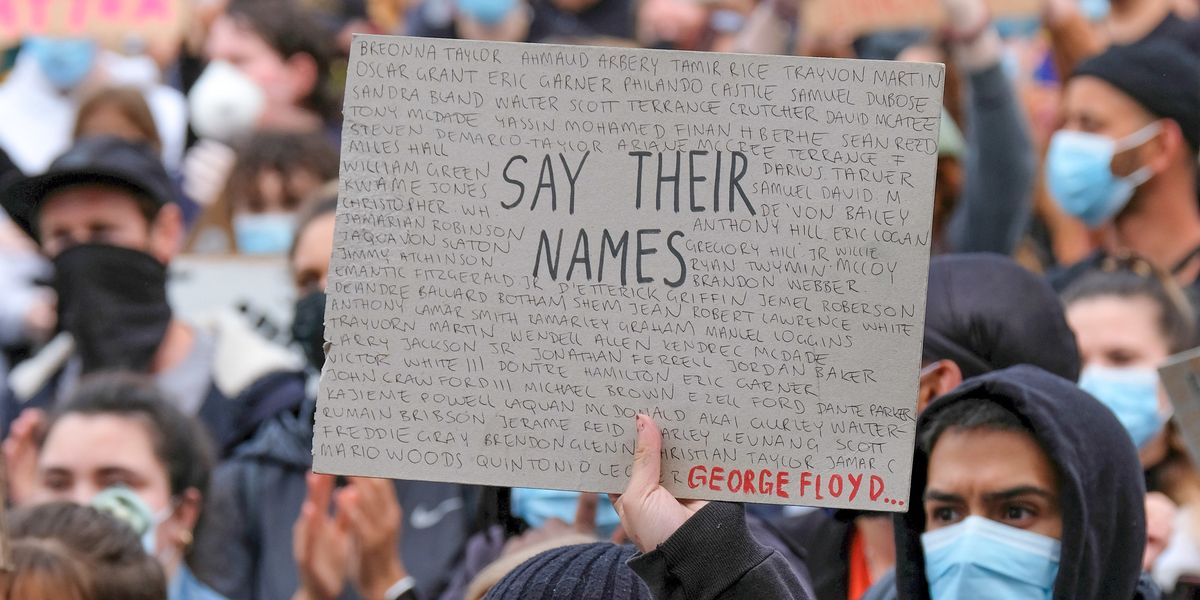 BREONNA TAYLOR AHMAUD ARBERY TAMIR RICE TRAYVON MARTIN
OSCAR GRANT ERIC GARNER PHILANDO CASTILE SAMUEL DUBOSE
SANDRA BLAND WALTER SCOTT TERRANCE CRUTCHER DAVID MCATEE
TONY MCDADE YASSIN MOHAMED FINAN H BERHE SEAN REED
STEVEN DEMARCO-TAYLOR ARIANE MCCREE TERRANCE F
MILES HALL
WILLIAM GREEN DARIUS TARVER
KWAME JONES SAMUEL DAVID M
CHRISTOPHER WH DE'VON BAILEY
SAY THEIR
NAMES
JAMARIAN ROBINSON ANTHONY HILL ERIC LOGAN
JAQUAVON SLATON GREGORY HILL JR WILLIE
JIMMY ATCHINSON RYAN TWYMIN MCCOY
EMANTIC FITZGERALD JR D'ETTERICK GRIFFIN BRANDON WEBBER
JEMEL ROBERSON
DEANDRE BALLARD BOTHAM SHEM JEAN ROBERT LAWRENCE WHITE
ANTHONY LAMAR SMITH RAMARLEY GRAHAM MANUEL LOGGINS
TRAYVORN MARTIN WENDELL ALLEN KENDREC MCDADE
LARRY JACKSON JR JONATHAN FERRELL JORDAN BAKER
VICTOR WHITE III DONTRE HAMILTON ERIC GARNER
JOHN CRAWFORD III MICHAEL BROWN EZELL FORD DANTE PARKER
KAJIEME POWELL LAQUAN MCDONALD AKAI GURLEY WALTER
RUMAIN BRIBSON JERAME REID KEUNANG SCOTT
FREDDIE GRAY BRENDON GLENN TAYLOR JAMAR C
MARIO WOODS QUINTONIO
GEORGE FLOYD...